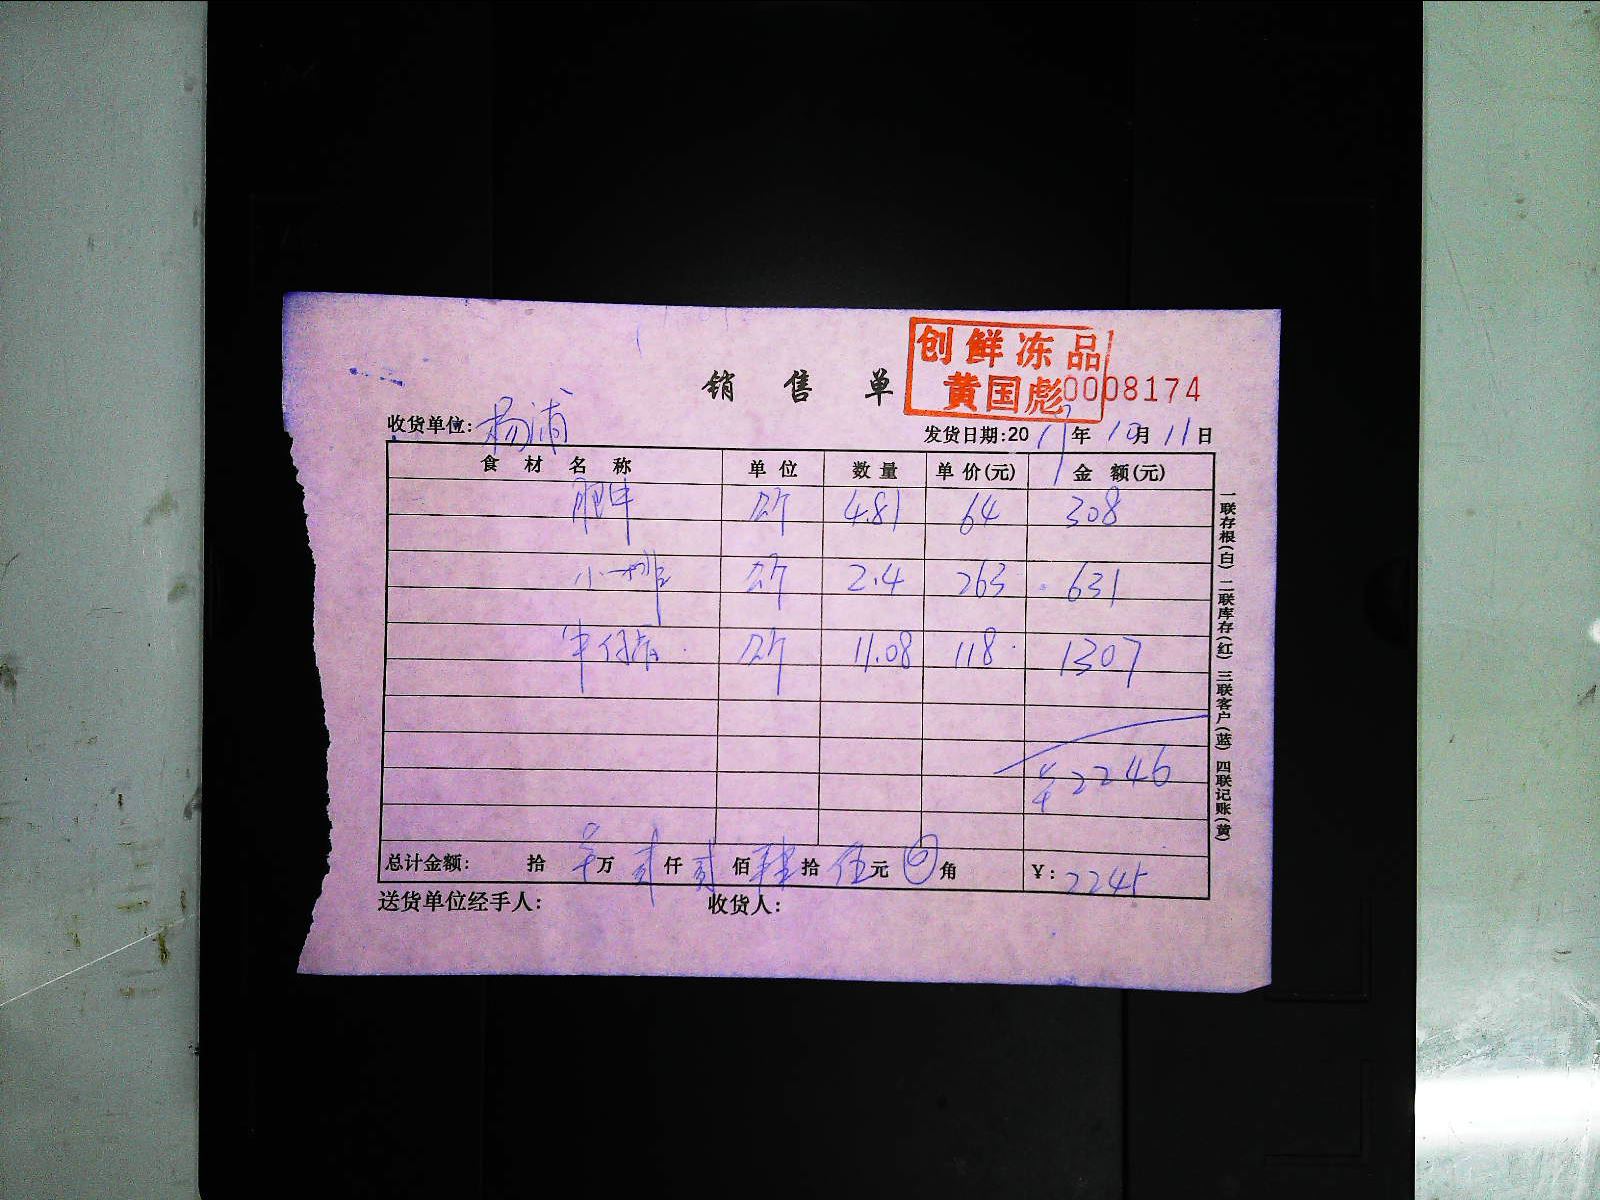 创鲜冻品
黄国彪
销售单 0008174
收货单位: 杨浦 发货日期:20 年 10 月 11 日
食材名称 单位 数量 单价(元) 金额(元)
肥牛 公斤 4.81 64 308
小排 公斤 2.4 263 631
牛仔 公斤 11.08 118 1307
¥2246
总计金额: 拾 万 贰 仟 贰 佰 肆 拾 伍 元 角 ¥: 2245
送货单位经手人: 收货人:
一联存根(白) 二联库存(红) 三联客户(蓝) 四联记账(黄)